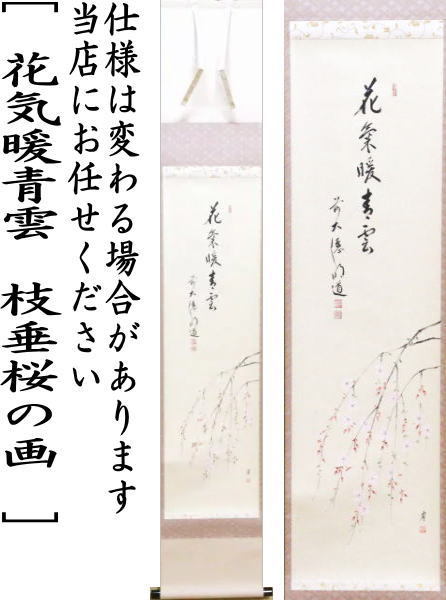 仕様は変わる場合があります
当店にお任せください
[ 花気暖青雲 枝垂桜の画 ]
花氣暖青雲
前大徳明道
花氣暖青雲
前大徳明道